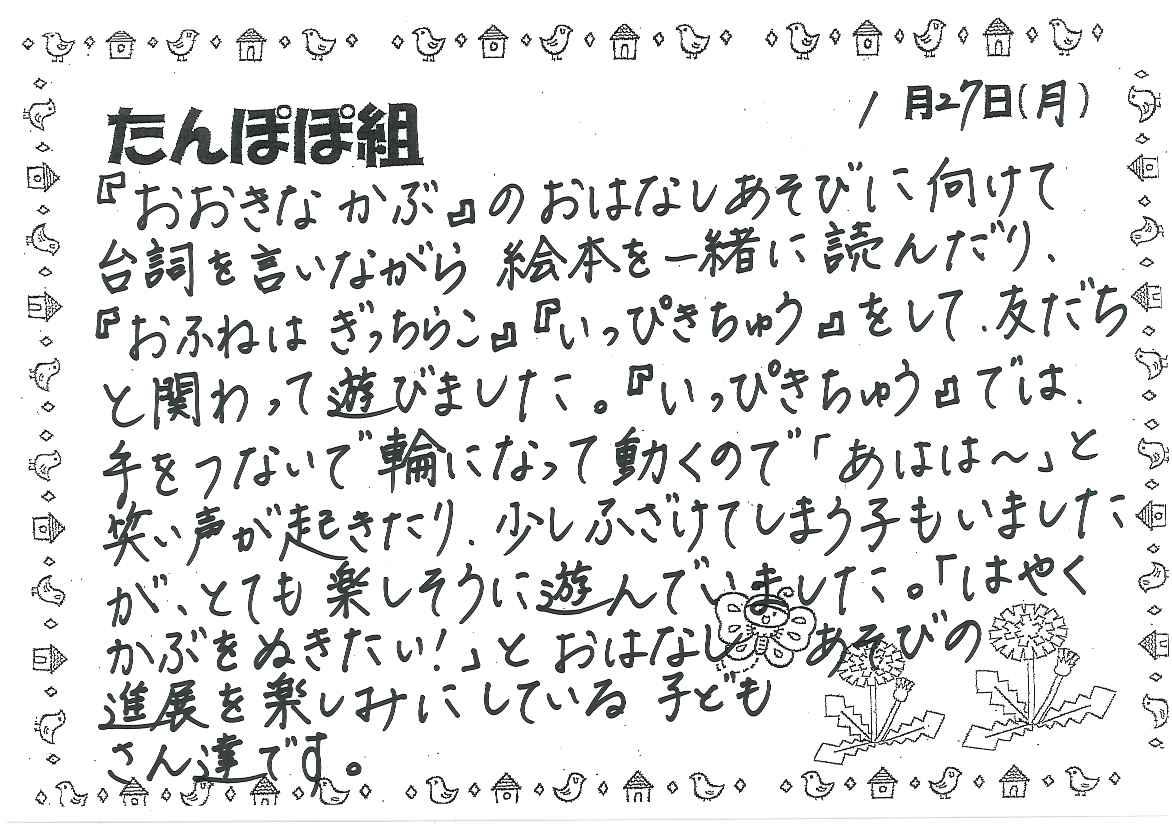 1月27日(月)
たんぽぽ組
『おおきなかぶ』のおはなしあそびに向けて
台詞を言いながら絵本を一緒に読んだり、
『おふねはぎっちらこ』『いっぴきちゅう』をして、友だち
と関わって遊びました。『いっぴきちゅう』では、
手をつないで輪になって動くので「あはは〜」と
笑い声が起きたり、少しふざけてしまう子もいました
が、とても楽しそうに遊んでいました。「はやく
かぶをぬきたい!」とおはなしあそびの
進展を楽しみにしている子ども
さん達です。